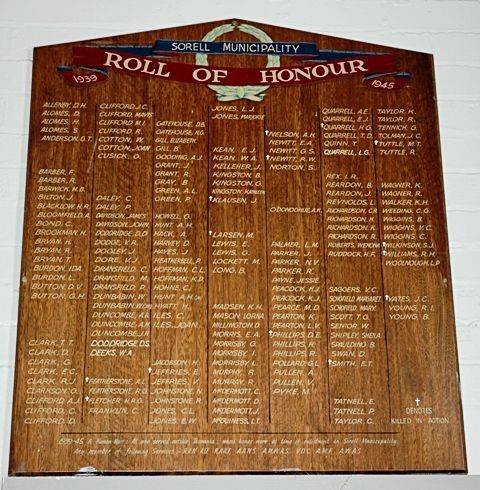 SORELL MUNICIPALITY
ROLL OF HONOUR
1939
1945
ALLENBY. D.H.
ALOMES, D.
ALOMES, H.
ALOMES, S.
ANDERSON, G.T.
BARBER, F.
BARBER, R.
BARWICK, M.B.
BILTON, J.
BLACKLOW, H.R.
BLOOMFIELD, A.
BOND, C.
BROOMAN, H.
BRYAN, N.
BRYAN, T.
BURDON, IDA.
BURDON, L.
BUTTON, D.V.
BUTTON, G.H.
CLARK, T.T.
CLARK, D.
CLARK, G.
CLARK, E.C.
CLARK, R.J.
CLARKSON, G.
CLIFFORD, A.J.
CLIFFORD, C.
CLIFFORD, D.
CLIFFORD, J.C.
CLIFFORD, MAVIS
CLIFFORD, M.L.
CLIFFORD, R.
COTTON, W.
COTTON, JOAN
CUSICK, O.
DALEY, C.
DALEY, P.
DAVIDSON, JAMES
DAVIDSON, JOHN
DODDRIDGE, D.D.
DODGE, V.R.
DORLEY, J.
DORE, V.J.
DRANSFIELD, C.
DRANSFIELD, M.
DRANSFIELD, R.
DUNBABIN, W.
DUNBABIN, W.
DUNCOMBE, A.R.
DUNCOMBE, A.H.
DUNCOMBE, J.R.
DODDRIDGE D.S.
DEEKS, W.A.
FEATHERSTONE, A.L.
FEATHERSTONE, R.G.
FLETCHER, H.R.G.
FRANKLIN, C.
GATEHOUSE, D.B.
GATEHOUSE, N.G.
GILL, ELIZABETH
GILL, B.
GOODING, A.J.
GRANT, J.
GRANT, R.
GRAY, B.
GREEN, A.L.
GREEN, P.
HOWELL, G.
HUNT, A.H.
HACK, A.
HARVEY, D.
HAYES, J.
HEATHERBELL, P.
HOFFMAN, C.L.
HOFFMAN, K.D.
HOHNE, C.
HUNT, A.H.
HYATT, H.
ILES, C.
ILES, JOAN.
JACOBSON, H.
JEFFRIES, E.
JEFFRIES, V.
JOHNSTONE, N.
JOHNSTONE, R.
JONES, C.L.
JONES, E.W.
JONES, L.J.
JONES, MARJORIE
KEAN, E.J.
KEAN, W.A.
KELLEHER, M.
KINGSTON, B.
KINGSTON, G.
KINGSTON, KATHLEEN
KLAUSEN, J.
LARSEN, M.
LEWIS, E.
LEWIS, G.
LOCKETT, M.
LONG, B.
MADSEN, K.H.
MASON, LORNA
MILLINGTON, D.
MORRIS, E.A.
MORRISBY, G.
MORRISBY, I.
MORRISBY, L.
MURPHY, R.
MURRAY, R.
McDERMOTT, C.
McDERMOTT, J.
McDERMOTT, L.
McGUINESS, L.T.
NELSON, A.H.
NEWITT, E.A.
NEWITT, G.S.
NEWITT, R.W.
NORTON, S.
O'DONOHUE, A.K.
PALMER, L.M.
PARKER, J.
PARKER, N.V.
PARKER, R.
PAYNE, JESSIE.
PEACOCK, H.J.
PEACOCK, K.J.
PEARCE, M.D.
PEARTON, K.
PEARTON, L.V.
PHILLIPS, D.E.
PHILLIPS, H.
PHILLIPS, R.
POLLARD, G.L.
PULLEN, A.
PULLEN, V.
PYKE, M.
QUARRELL, A.E.
QUARRELL, E.J.
QUARRELL, H.G.
QUARRELL, T.D.
QUINN, T.
QUARRELL, L.G.
REX, I.R.
REARDON, B.
REARDON, J.
REYNOLDS, L.
RICHARDSON, C.R.
RICHARDSON, H.
RICHARDSON, K.
RICHARDSON, S.
ROBERTS, WENONA
RUDDOCK, H.F.
SAGGERS, V.C.
SCHOFIELD, MARGARET
SCHOFIELD, MARX
SCOTT, T.G.
SENIOR, W.
SHIPLEY, SHEILA.
SPAULDING, B.
SWAN, D.
SMITH, E.T.
TATNELL, E.
TATNELL, P.
TAYLOR, C.
TAYLOR, K.
TAYLOR, R.
TENNICK, G.
TOLMAN, J.C.
TUTTLE, M.T.
TUTTLE, R.
WAGNER, K.
WAGNER, R.
WALKER, K.H.
WEEDING, C.G.
WIGGINS, B.
WIGGINS, H.
WIGGINS, C.
WILKINSON, S.J.
WILLIAMS, R.H.
WOOLNOUGH, L.P.
YATES, J.C.
YOUNG, R.L.
YOUNG, B.
DENOTES
KILLED IN ACTION
1939-45 A Roman Numeral